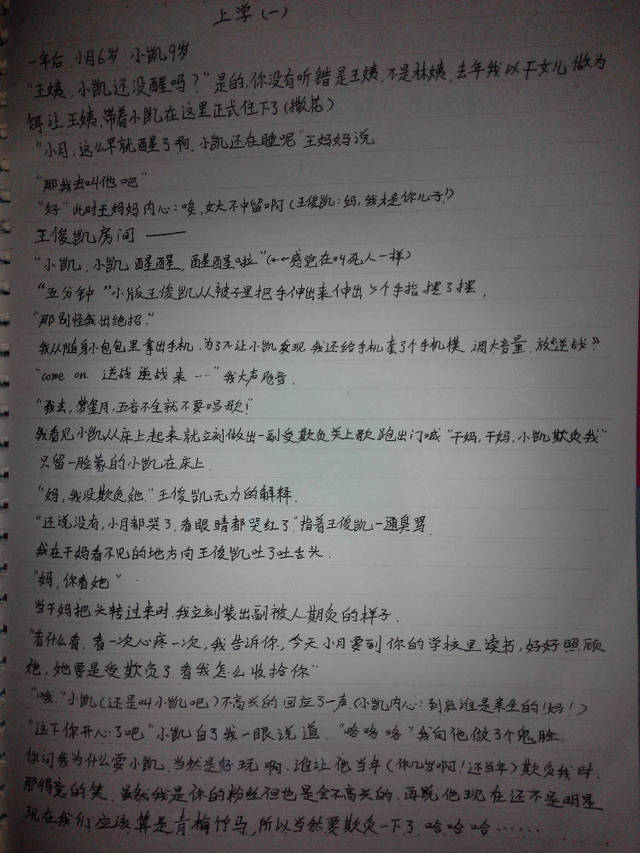 上学(一)
一年后 小月6岁 小凯9岁
"王姨,小凯还没醒吗?"是的,你没有听错是王姨,不是林姨,去年我以干女儿做为
饵让王姨,带着小凯在这里正式住下了(撒花)
"小月,这么早就醒了啊,小凯还在睡呢"王妈妈说
"那我去叫他吧"
"好"此时王妈妈内心:唉,女大不中留啊(王俊凯:妈,我才是你儿子!)
王俊凯房间——
"小凯,小凯醒醒,醒醒啦"(←←感觉在叫死人一样)
"五分钟"小版王俊凯从被子里把手伸出来伸出5个手指摆了摆.
"那别怪我出绝招."
我从随身小包包里拿出手机.为了不让小凯发现我还给手机套了个手机模.调大音量.放《逆战》
"come on 逆战逆战来…"我大声
"我去,梦月,五音不全就不要唱歌!"
我看见小凯从床上起来就立刻做出一副受欺负关上歌跑出门喊"干妈,干妈,小凯欺负我"
只留一脸蒙的小凯在床上.
"妈,我没欺负她."王俊凯无力的解释.
"还说没有,小月都哭了.看眼睛都哭红了"指着王俊凯一通臭骂.
我在干妈看不见的地方向王俊凯吐了吐舌头.
"妈,你看她"
当干妈把头转过来时.我立刻装出副被人期负的样子.
"看什么看.看一次心疼一次,我告诉你,今天小月要到你的学校里读书,好好照顾
她,她要是受欺负了.看我怎么收拾你"
"哦."小凯(还是叫小凯吧)不高兴的回应了一声.(小凯内心:到底谁是亲生的!妈!)
"这下你开心了吧"小凯白了我一眼说道."咯咯咯"我向他做了个鬼脸.
你问我为什么耍小凯.当然是好玩啊.谁让他当年(你几岁啊!还当年)欺负我时.
那得意的笑.虽然我是你的粉丝但也是会不高兴的.再说他现在还不是明星
现在我们应该算是青梅竹马,所以当然要欺负一下了.哈哈哈……